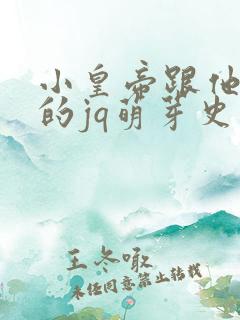 小皇帝跟他
的jq萌芽史
王冬啾
未经同意禁止转载